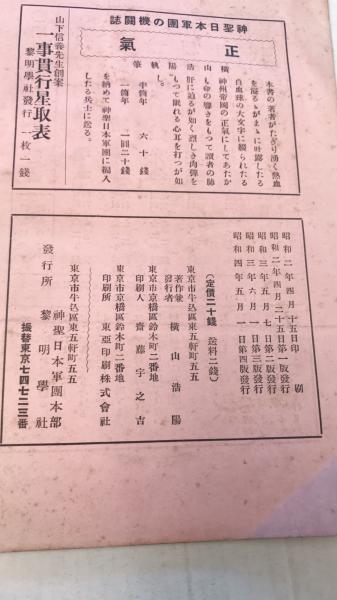 神聖日本軍團の機關誌
正氣
本書の著者がたぎり湧く熱血
を迸るがまゝに吐露したる
白血球の大文字に綴られたる
神州帝國の正氣にしてあたか
も命の響きをもつて讀者の肺
肝に迫るが如く烈しき肉彈を
もつて眠れる心耳を打つが如
し。
橫山浩陽執筆
半箇年 六十錢
一箇年 一圓二十錢
を納めて神聖日本軍團に編入
したる兵士に送る。
山下信義先生創案
一事貫行星取表
黎明學社發行 一枚一錢
昭和二年四月十五日印刷
昭和二年四月二十五日第一版發行
昭和三年五月七日第二版發行
昭和三年六月一日第三版發行
昭和四年五月一日第四版發行
(定價二十錢 送料二錢)
東京市牛込區東五軒町五五
著作兼發行者 橫山浩陽
東京市京橋區鈴木町二番地
印刷人 齋藤宇之吉
東京市京橋區鈴木町二番地
印刷所 東亞印刷株式會社
東京市牛込區東五軒町五五
發行所 神聖日本軍團本部
黎明學社
振替東京七四七二三番